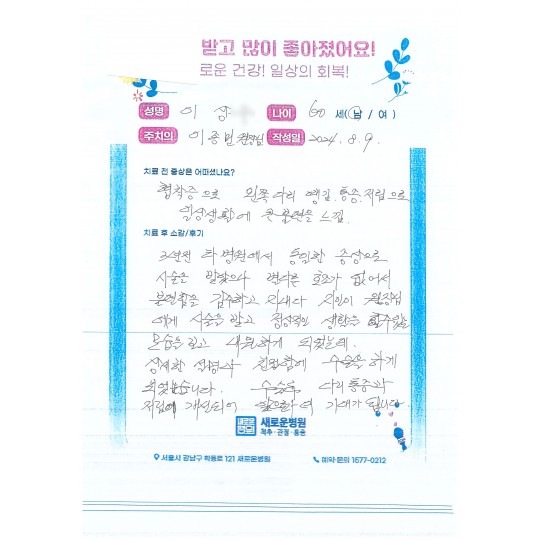 받고 많이 좋아졌어요!
로운 건강! 일상의 회복!
성명 이 상 나이 60 세(남 / 여)
주치의 이종민 원장님 작성일 2024. 8. 9.
치료 전 증상은 어떠셨나요?
협착증으로 왼쪽 다리 땡김. 통증. 저림으로
일상생활에 큰 불편을 느낌.
치료 후 소감/후기
3년전 타 병원에서 동일한 증상으로
시술을 받았으나 별다른 효과가 없어서
불편함을 감수하고 지내다 지인이 원장님
에게 시술을 받고 정상적인 생활을
모습을 보고 내원하게 되었는데.
상세한 설명과 친절함에 수술을 하게
되었습니다. 수술후 다리 통증과
저림이 개선되어 앞으로가 더 기대가 됩니다.
새로운병원 새로운병원
척추·관절·통증
서울시 강남구 학동로 121 새로운병원 예약·문의 1677-0212